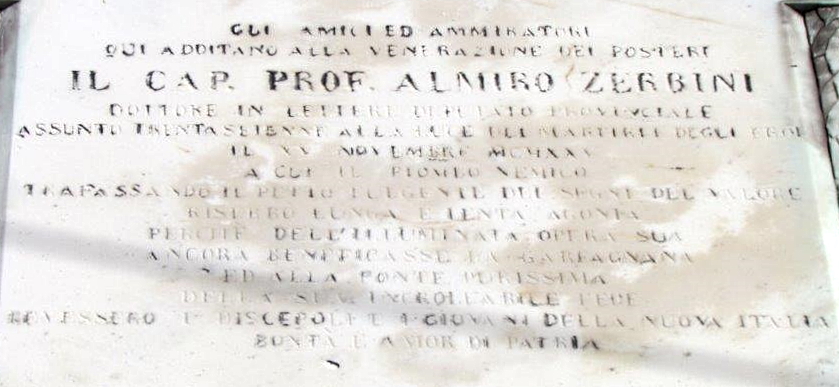 GLI AMICI ED AMMIRATORI
QUI ADDITANO ALLA VENERAZIONE DEI POSTERI
IL CAP. PROF. ALMIRO ZERBINI
DOTTORE IN LETTERE DEPUTATO PROVINCIALE
ASSUNTO TRENTASEIENNE ALLA LUCE DEI MARTIRI E DEGLI EROI
IL XV NOVEMBRE MCMXXV
A CUI IL PIOMBO NEMICO
TRAPASSANDO IL PETTO FULGENTE DEI SEGNI DEL VALORE
RISERBÒ LUNGA E LENTA AGONIA
PERCHÈ DELL'ILLUMINATA OPERA SUA
ANCORA BENEFICASSE LA GARFAGNANA
ED ALLA FONTE PURISSIMA
DELLA SUA INCROLLABILE FEDE
BEVESSERO I DISCEPOLI E I GIOVANI DELLA NUOVA ITALIA
BONTÀ E AMOR DI PATRIA